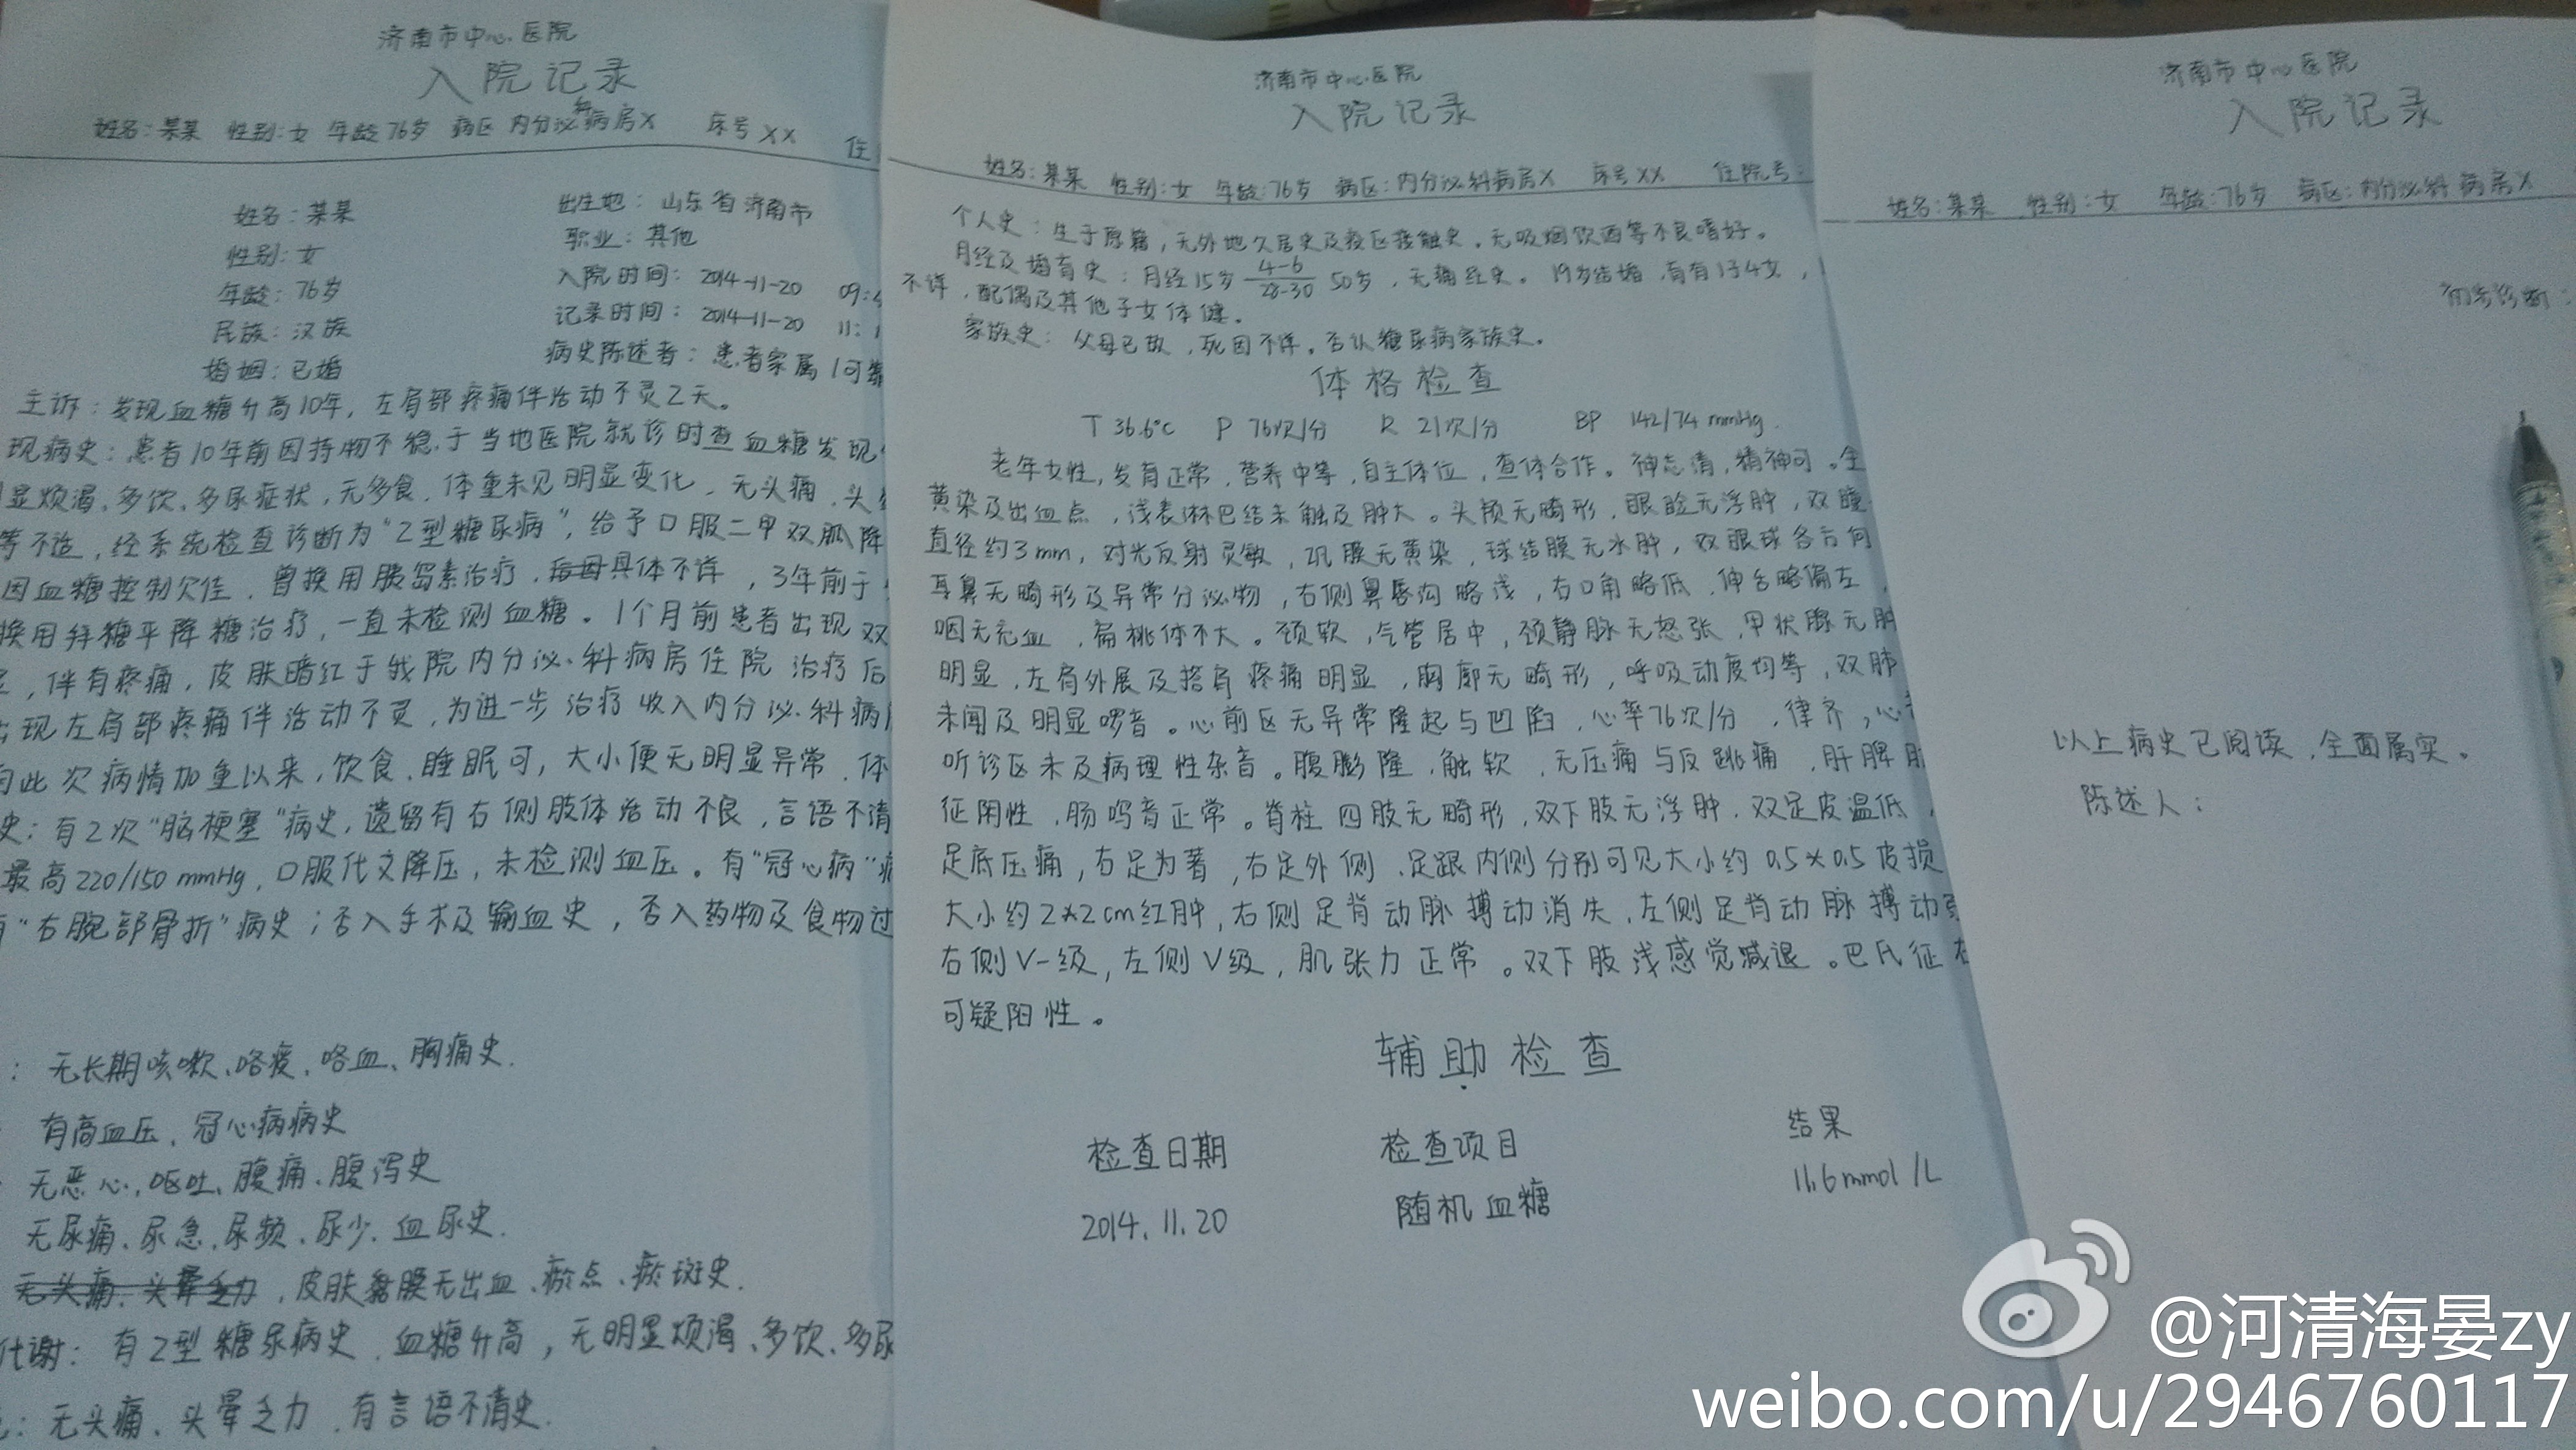 济南市中心医院
入院记录
姓名:某某 性别:女 年龄76岁 病区 内分泌科病房X 床号XX 住
姓名:某某
性别:女
年龄:76岁
民族:汉族
婚姻:已婚
出生地:山东省济南市
职业:其他
入院时间:2014-11-20 09:
记录时间:2014-11-20 11:1
病史陈述者:患者家属 /可靠
主诉:发现血糖升高10年,左肩部疼痛伴活动不灵2天。
现病史:患者10年前因持物不稳,于当地医院就诊时查血糖发现
显烦渴、多饮、多尿症状,无多食,体重未见明显变化,无头痛、头
等不适,经系统检查诊断为"2型糖尿病",给予口服二甲双胍降
因血糖控制欠佳,曾换用胰岛素治疗,具体不详,3年前于
换用拜糖平降糖治疗,一直未检测血糖。1个月前患者出现双
,伴有疼痛,皮肤暗红于我院内分泌科病房住院 治疗后
出现左肩部疼痛伴活动不灵,为进一步治疗收入内分泌科病
自此次病情加重以来,饮食、睡眠可,大小便无明显异常,体
史:有2次"脑梗塞"病史,遗留有右侧肢体活动不良,言语不清
最高220/150mmHg,口服代文降压,未检测血压。有"冠心病"病
有"右腕部骨折"病史;否入手术及输血史,否入药物及食物过
:无长期咳嗽、咯痰、咯血、胸痛史.
有高血压、冠心病病史
无恶心、呕吐、腹痛、腹泻史
无尿痛、尿急、尿频、尿少、血尿史.
无头痛、头晕乏力,皮肤黏膜无出血、瘀点、瘀斑史.
代谢:有2型糖尿病史,血糖升高,无明显烦渴、多饮、多尿
:无头痛、头晕乏力,有言语不清史.
济南市中心医院
入院记录
姓名:某某 性别:女 年龄:76岁 病区:内分泌科病房X 床号XX 住院号:
个人史:生于原籍,无外地久居史及疫区接触史。无吸烟饮酒等不良嗜好。
月经及婚育史:月经15岁 4-6/28-30 50岁,无痛经史。19岁结婚,育有1子4女,
不详,配偶及其他子女体健。
家族史:父母已故,死因不详。否认糖尿病家族史。
体格检查
T 36.6℃ P 76次/分 R 21次/分 BP 142/74mmHg.
老年女性,发育正常,营养中等,自主体位,查体合作。神志清,精神可。全
黄染及出血点,浅表淋巴结未触及肿大。头颅无畸形,眼睑无浮肿,双瞳
直径约3mm,对光反射灵敏,巩膜无黄染,球结膜无水肿,双眼球各方向
耳鼻无畸形及异常分泌物,右侧鼻唇沟略浅,右口角略低,伸舌略偏左,
咽无充血,扁桃体不大。颈软,气管居中,颈静脉无怒张,甲状腺无肿
明显,左肩外展及搭肩疼痛明显,胸廓无畸形,呼吸动度均等,双肺
未闻及明显啰音。心前区无异常隆起与凹陷,心率76次/分,律齐,心
听诊区未及病理性杂音。腹膨隆,触软,无压痛与反跳痛,肝脾肋
征阴性,肠鸣音正常。脊柱四肢无畸形,双下肢无浮肿,双足皮温低,
足底压痛,右足为著,右足外侧、足跟内侧分别可见大小约0.5×0.5皮损
大小约2×2cm红肿,右侧足背动脉搏动消失,左侧足背动脉搏动
右侧V-级,左侧V级,肌张力正常。双下肢浅感觉减退。巴氏征
可疑阳性。
辅助检查
检查日期 检查项目 结果
2014.11.20 随机血糖 11.6mmol/L
济南市中心医院
入院记录
姓名:某某 性别:女 年龄:76岁 病区:内分泌科病房X
初步诊断:
以上病史已阅读,全面属实。
陈述人:
@河清海晏zy
weibo.com/u/2946760117